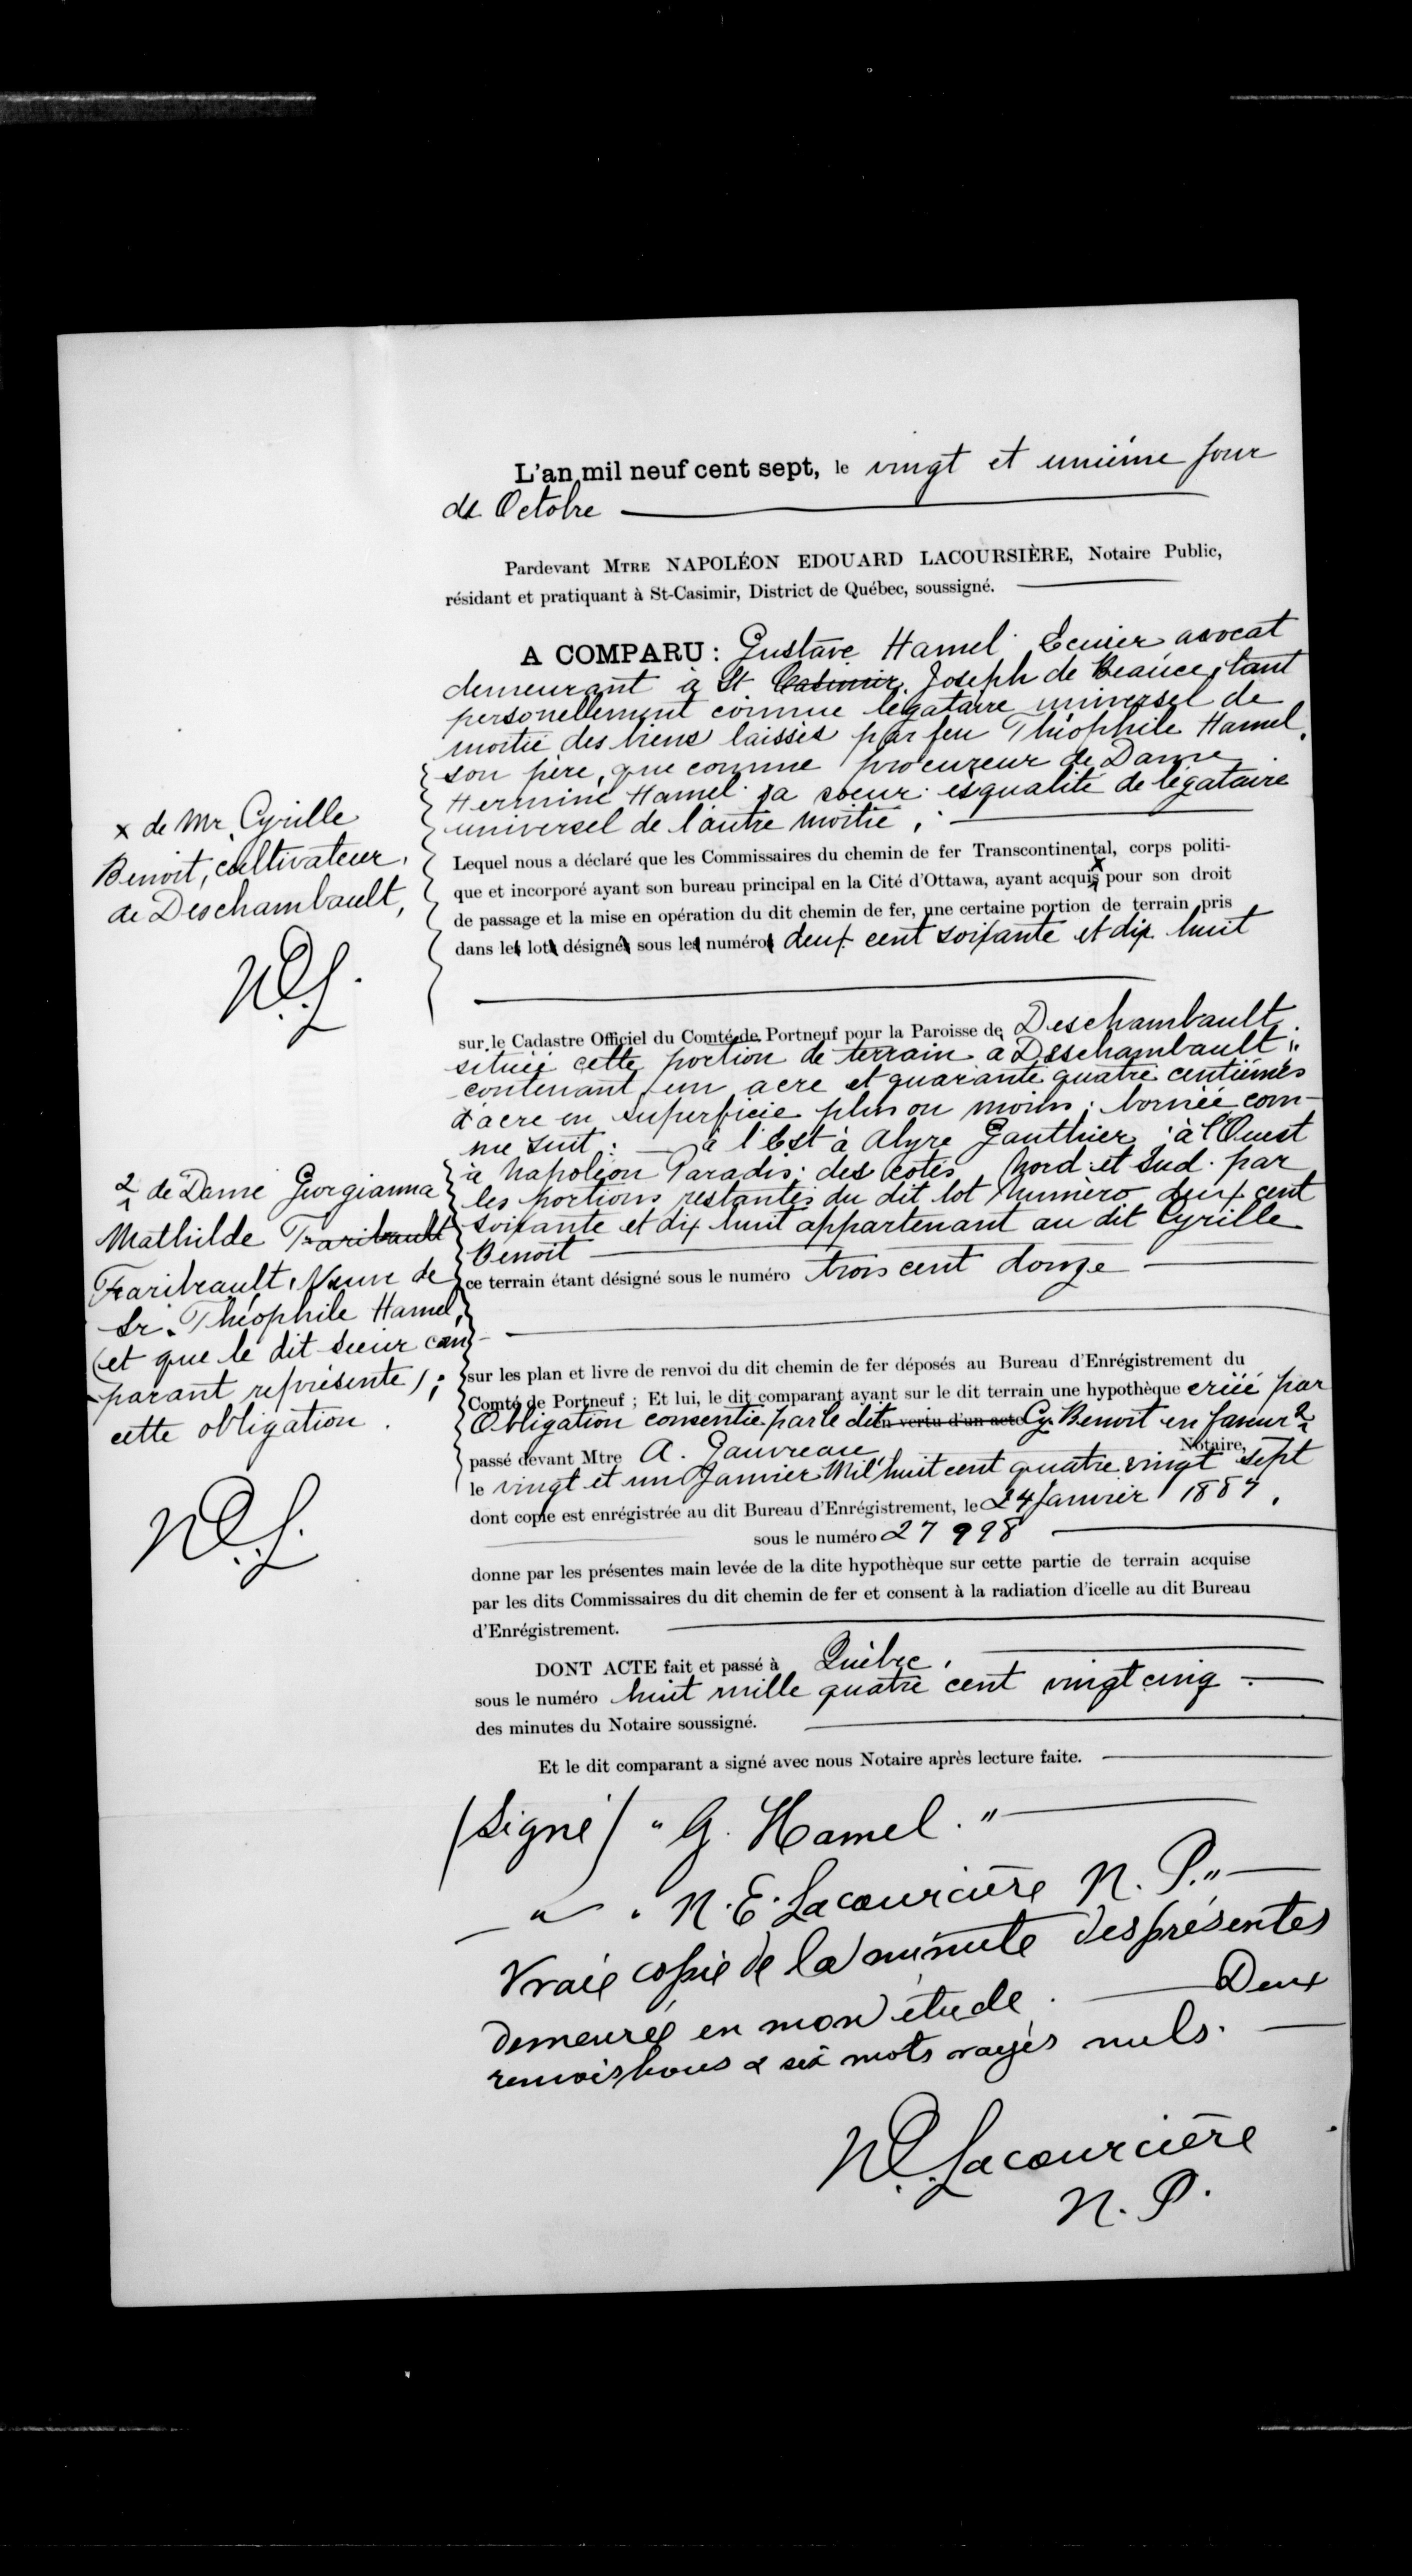 L'an mil neuf cent sept, le vingt et unième jour
de Octobre
Pardevant MTRE NAPOLÉON EDOUARD LACOURSIÈRE, Notaire Public,
résidant et pratiquant à St-Casimir, District de Québec, soussigné.
A COMPARU : Gustave Hamel Ecuier avocat
demeurant à St Casimir Joseph de Beauce, tant
personellement comme légataire universel de
moitié des biens laissés par feu Théophile Hamel,
son père, que comme procureur de Dame
Hermine Hamel sa soeur èsqualité de légataire
universel de l'autre moitié ;
Lequel nous a déclaré que les Commissaires du chemin de fer Transcontinental, corps politi-
que et incorporé ayant son bureau principal en la Cité d'Ottawa, ayant acquis x pour son droit
de passage et la mise en opération du dit chemin de fer, une certaine portion de terrain pris
dans les lots désignés sous les numéros deux cent soixante et dix huit
x de Mr Cyrille
Benoit, cultivateur,
de Deschambault,
N.E.L.
sur le Cadastre Officiel du Comté de Portneuf pour la Paroisse de Deschambault
située cette portion de terrain à Deschambault ;
contenant un acre et quarante quatre centièmes
d'acre en superficie plus ou moins ; bornée com-
me suit : — à l'Est à Alyre Gauthier ; à l'Ouest
à Napoléon Paradis ; des cotés Nord et Sud par
les portions restantes du dit lot Numéro deux cent
soixante et dix huit appartenant au dit Cyrille
Benoit
ce terrain étant désigné sous le numéro trois cent douze
sur les plan et livre de renvoi du dit chemin de fer déposés au Bureau d'Enrégistrement du
Comté de Portneuf ; Et lui, le dit comparant ayant sur le dit terrain une hypothèque créée par
Obligation consentie par le dit n vertu d'un acte Cy. Benoit en faveur 2
passé devant Mtre A. Gauvreau Notaire,
le vingt et un Janvier Mil huit cent quatre vingt sept
dont copie est enrégistrée au dit Bureau d'Enrégistrement, le 24 Janvier 1887,
sous le numéro 27 998
2 de Dame Georgianna
Mathilde Traribault
Faribault, Veuve de
Sr. Théophile Hamel,
(et que le dit sieur com-
parant représente) ;
cette obligation.
N.E.L.
donne par les présentes main levée de la dite hypothèque sur cette partie de terrain acquise
par les dits Commissaires du dit chemin de fer et consent à la radiation d'icelle au dit Bureau
d'Enrégistrement.
DONT ACTE fait et passé à Québec,
sous le numéro huit mille quatre cent vingt cinq
des minutes du Notaire soussigné.
Et le dit comparant a signé avec nous Notaire après lecture faite.
(Signé) " G. Hamel. "
" " N. E. Lacourcière N. P. "
Vraie copie de la minute des présentes
demeurée en mon étude. — Deux
renvois bons & six mots rayés nuls.
N.E. Lacourcière
N. P.